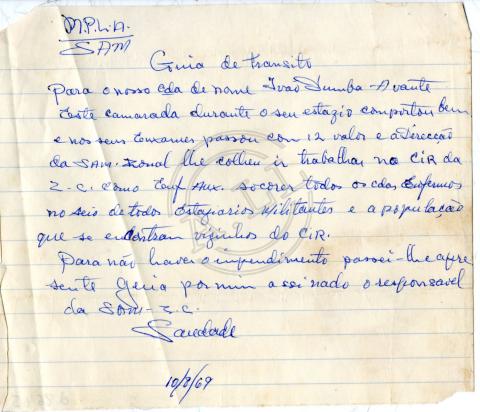 M.P.L.A.
SAM
Guia de transito
Para o nosso cda de nome João Dumba - Avante
Este camarada durante o seu estazio comportou bem
e nos seus Enxames passou con 12 valor e a Direcção
da SAM. Zonal lhe colheu ir trabalhar no CIR da
Z.C. como Enf Aux. socorer todos os cdas Enfermos
no seio de todos Estagiarios Militantes e a população
que se encontran vizinhos do CIR.
Para não haver o impendimento passei-lhe a pre
sente Geria por mim assinado o responsavel
da SAM - Z.C.
Saudade
10/8/69